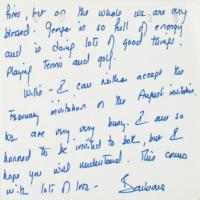 him, but on the whole we are very
blessed. George is so full of energy
and is doing lots of good things.
Playing tennis and golf.
Willie - I can neither accept the
February invitation or the August invitation.
We are very very busy. I am so
honored to be invited to both, but I
hope you will understand. This comes
with lots of love - Barbara